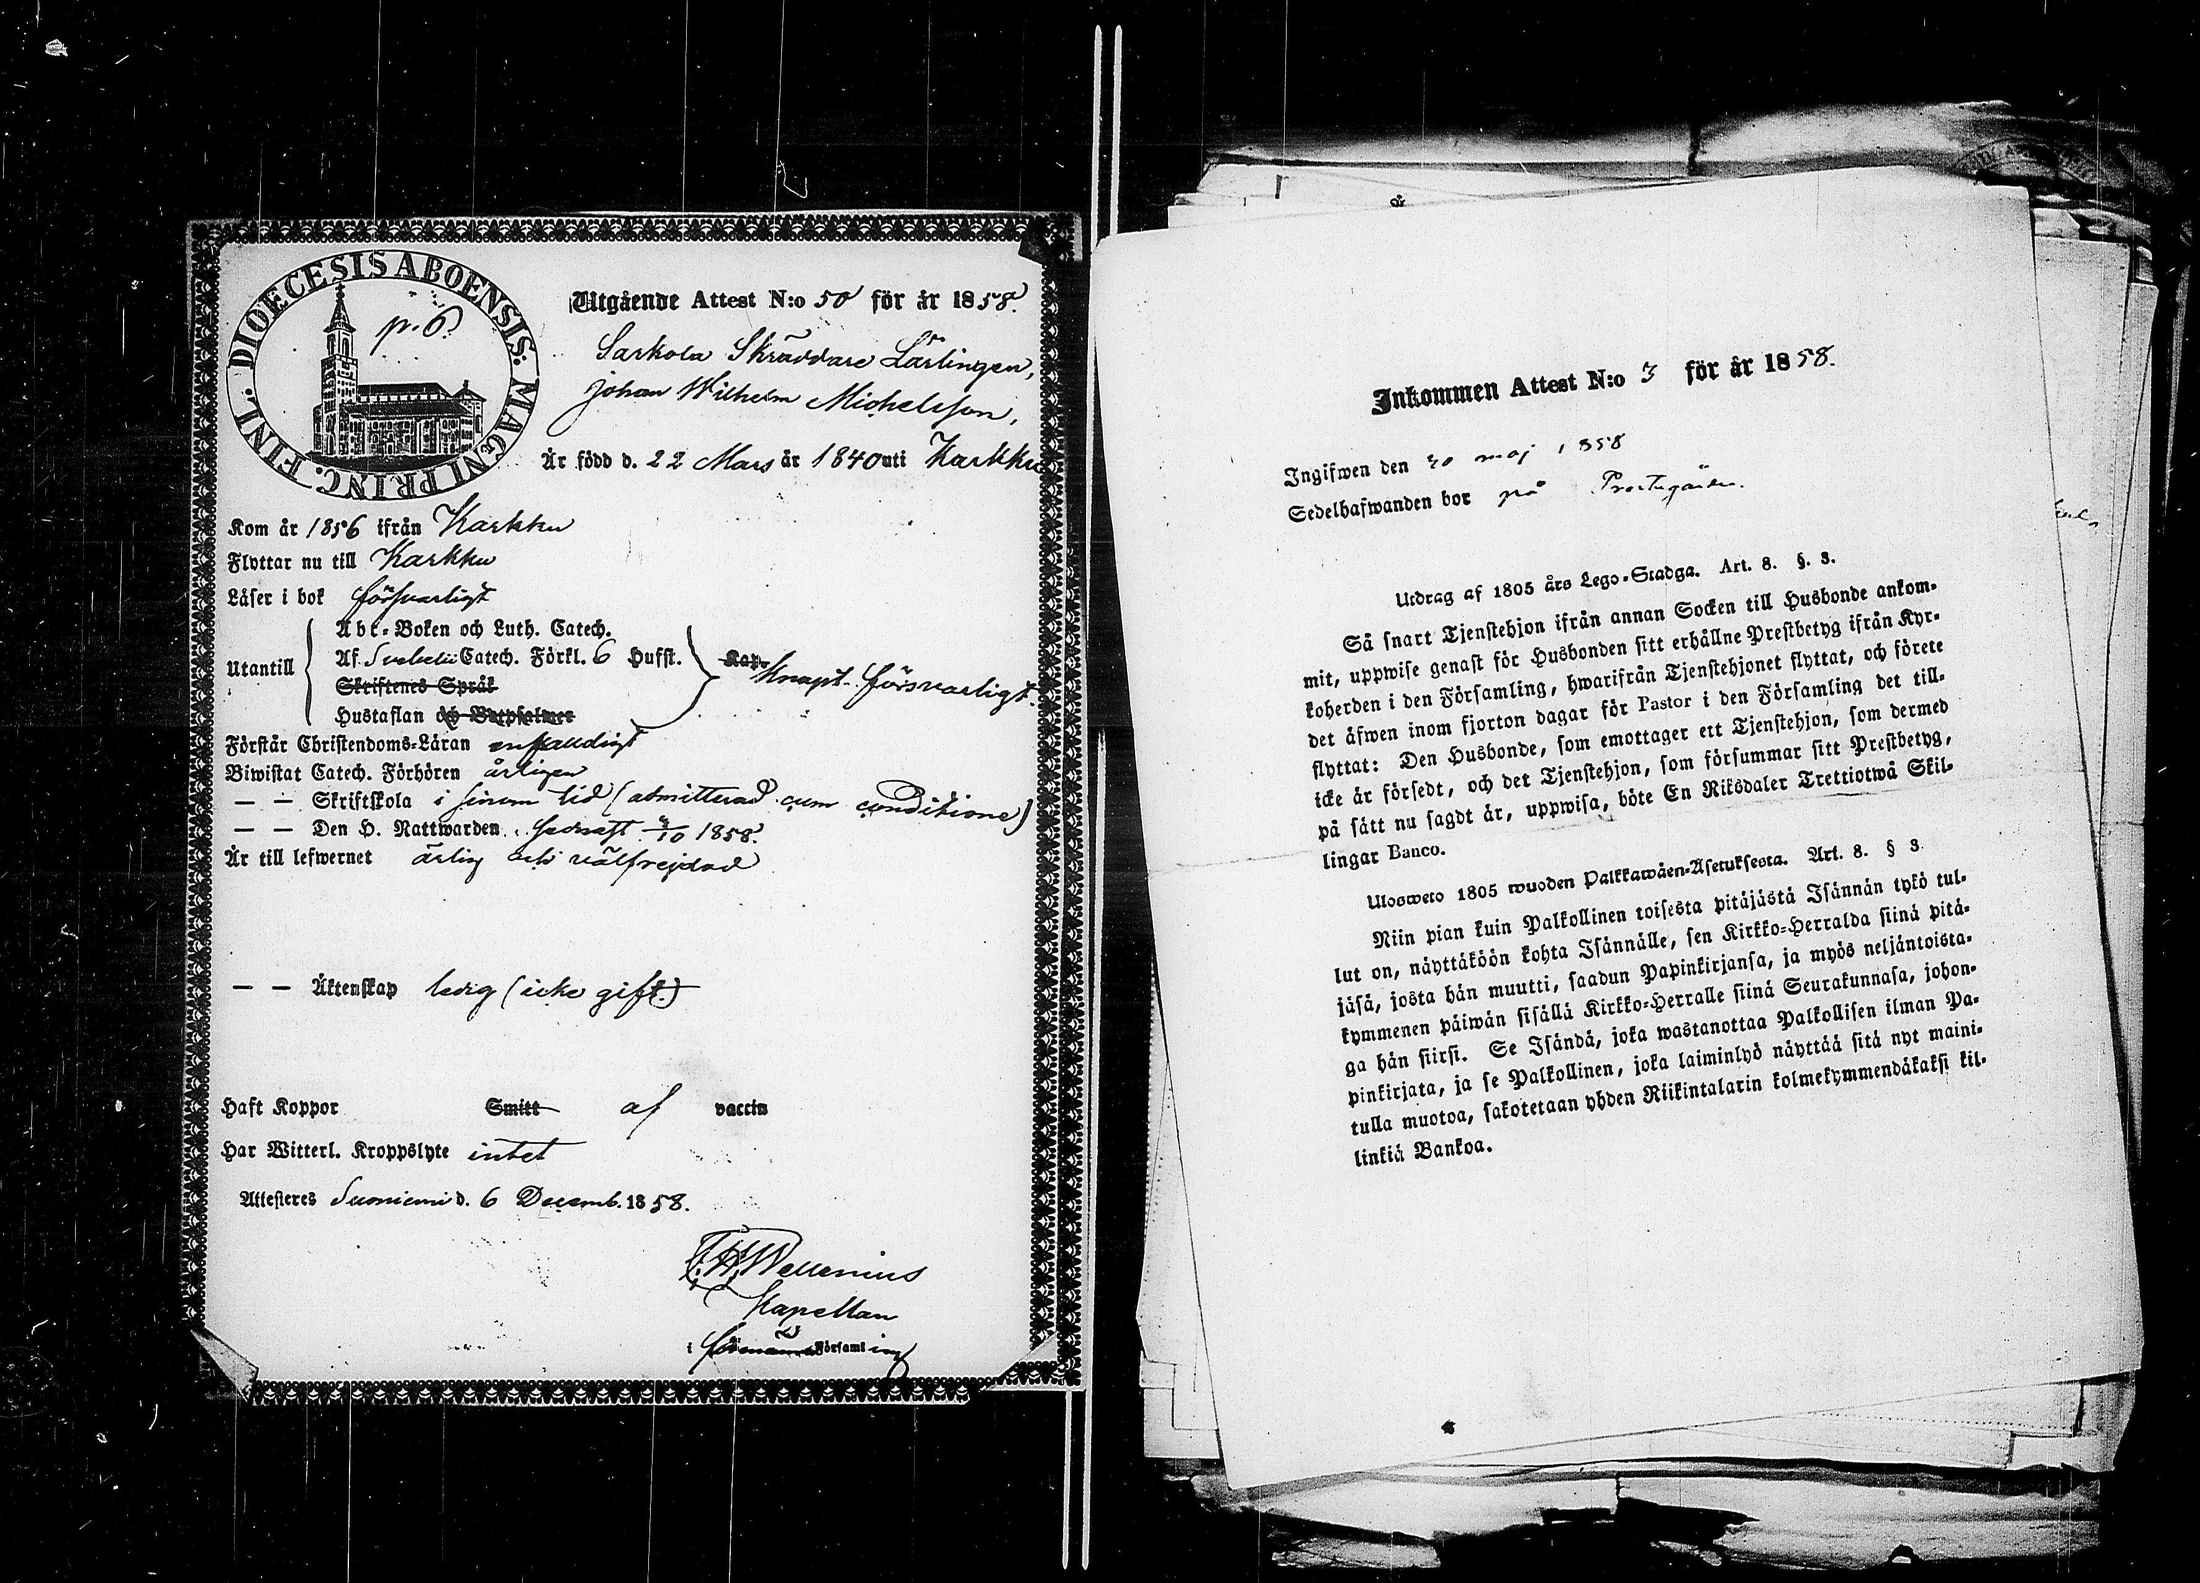 DIOECESIS ABOENSIS. MAGNI PRINC. FINL.
p. 6.
Utgående Attest N:o 50 för år 1858.
Sarkola Skräddare Lärlingen,
Johan Wilhelm Michelsson,
Är född d. 22 Mars år 1840 uti Karkku
Kom år 1856 ifrån Karkku
Flyttar nu till Karkku
Läser i bok försvarligt
Utantill
Abc-Boken och Luth. Catech.
Af Svebelii Catech. Förkl. 6 Hufst.
Skriftenes Språk
Hustaflan och Botpsalmer
Knapt försvarligt.
Förstår Christendoms-Läran enfalldigt
Biwistat Catech. Förhören årligen
— — Skriftskola i sinom tid (admitterad cum conditione)
— — Den H. Nattwarden 1858.
Är till lefwernet ärlig och välfrejdad
— — Äktenskap ledig (icke gift.)
Haft Koppor Smitt af vaccin
Har Witterl. Kroppslyte intet
Attesteres Suoniemi d. 6 Decemb. 1858.
Wellenius
Kapellan
i Församling
Inkommen Attest N:o 3 för år 1858.
Ingifwen den maj 1858
Sedelhafwanden bor på Prestgården.
Utdrag af 1805 års Lego-Stadga. Art. 8. §. 3.
Så snart Tjenstehjon ifrån annan Socken till Husbonde ankom-
mit, uppwise genast för Husbonden sitt erhållne Prestbetyg ifrån Kyr-
koherden i den Församling, hwarifrån Tjenstehjonet flyttat, och förete
det äfwen inom fjorton dagar för Pastor i den Församling det till-
flyttat: Den Husbonde, som emottager ett Tjenstehjon, som dermed
icke är försedt, och det Tjenstehjon, som försummar sitt Prestbetyg,
på sätt nu sagdt är, uppwisa, böte En Riksdaler Trettiotwå Skil-
lingar Banco.
Ulosweto 1805 wuoden Palkkawäen-Asetuksesta. Art. 8. § 3
Niin pian kuin Palkollinen toisesta pitäjästä Isännän tykö tul-
lut on, näyttäköön kohta Isännälle, sen Kirkko-Herralda siinä pitä-
jäsä, josta hän muutti, saadun Papinkirjansa, ja myös neljäntoista-
kymmenen päiwän sisällä Kirkko-Herralle siinä Seurakunnasa, johon-
ga hän siirsi. Se Isändä, joka wastanottaa Palkollisen ilman Pa-
pinkirjata, ja se Palkollinen, joka laiminlyö näyttää sitä nyt maini-
tulla muotoa, sakotetaan yhden Riikintalarin kolmekymmendäkaksi kil-
linkiä Bankoa.